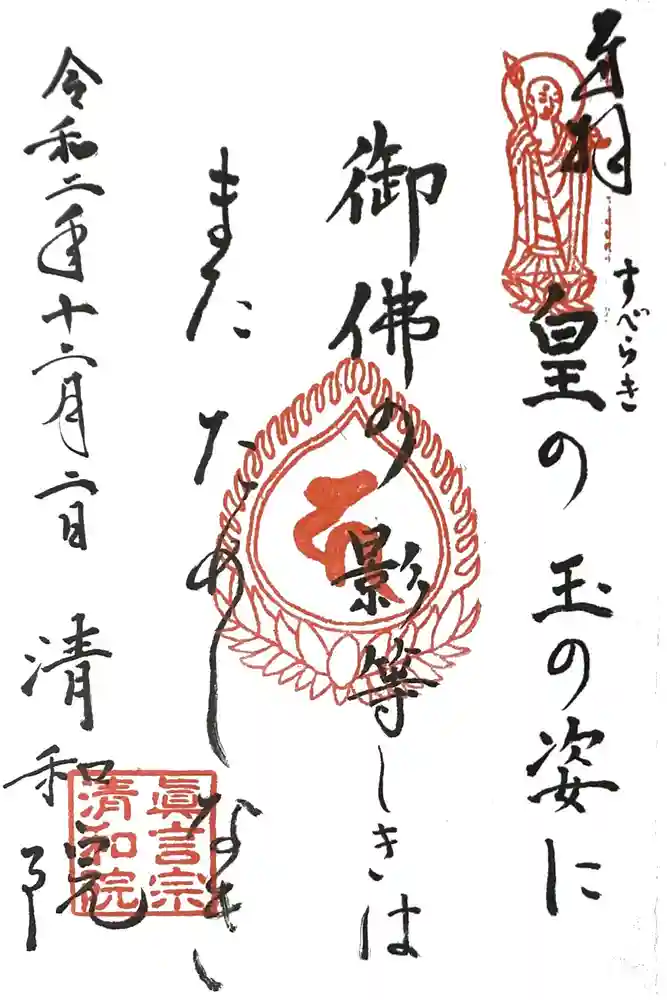 奉拝
すべらき
皇の玉の姿に
御佛の影等しきは
まただめしなきし
令和二年十二月二日
清和院
眞言宗
清和院